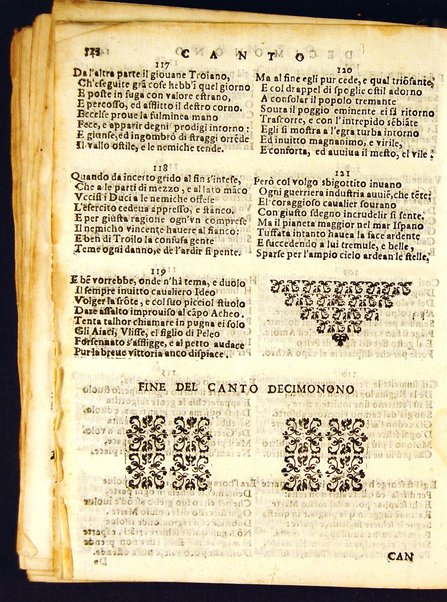 CANTO
117
Da l'altra parte il giouane Troiano,
Ch'eseguite grã cose hebb'i quel giorno
E poste in fuga con valore estrano,
E percosso, ed afflitto il destro corno.
Eccelse proue la fulminea mano
Fece, e apparir degni prodigi intorno:
E giunse, ed ingombrò di straggi orrẽde
Il vallo ostile, e le nemiche tende.
118
Quando da incerto grido al fin s'intese,
Che a le parti di mezzo, e al lato mãco
Vccisi i Duci a le nemiche offese
L'esercito cedeua appresso, e stanco.
E per giusta ragione ogn'vn comprese
Il nemicho vincente hauere al fianco:
E ben di Troilo la confusa gente
Teme ogni danno, e de l'ardir si pente.
119
E bẽ vorrebbe, onde n'hà tema, e duolo
Il sempre inuitto caualiero Ideo
Volger la frõte, e col suo picciol stuolo
Dare assalto improuiso al cãpo Acheo.
Tenta talhor chiamare in pugna ei solo
Gli Aiaci, Vlisse, e'l figlio di Peleo
Forsennato s'affligge, e al petto audace
Pur la breue vittoria anco dispiace.
120
Ma al fine egli pur cede, e qual triõfante,
E col drappel di spoglie ostil adorno
A consolar il popolo tremante
Soura il poggio eminente ei sì ritorno
Trascorre, e con l'intrepido sẽbiãte
Egli si mostra a l'egra turba intorno
Ed inuitto magnanimo, e virile,
E conforta, ed auuiua il mesto, el vile.
121
Però col volgo sbigottito inuano
Ogni guerriera industria auuiẽ, che tẽte:
E'l coraggioso caualier sourano
Con giusto sdegno incrudelir si sente.
Ma il pianeta maggior nel mar Ispano
Tuffata intanto hauea la face ardente
E succedendo a lui tremule, e belle,
Sparse per l'ampio cielo ardean le stelle.
FINE DEL CANTO DECIMONONO
CAN